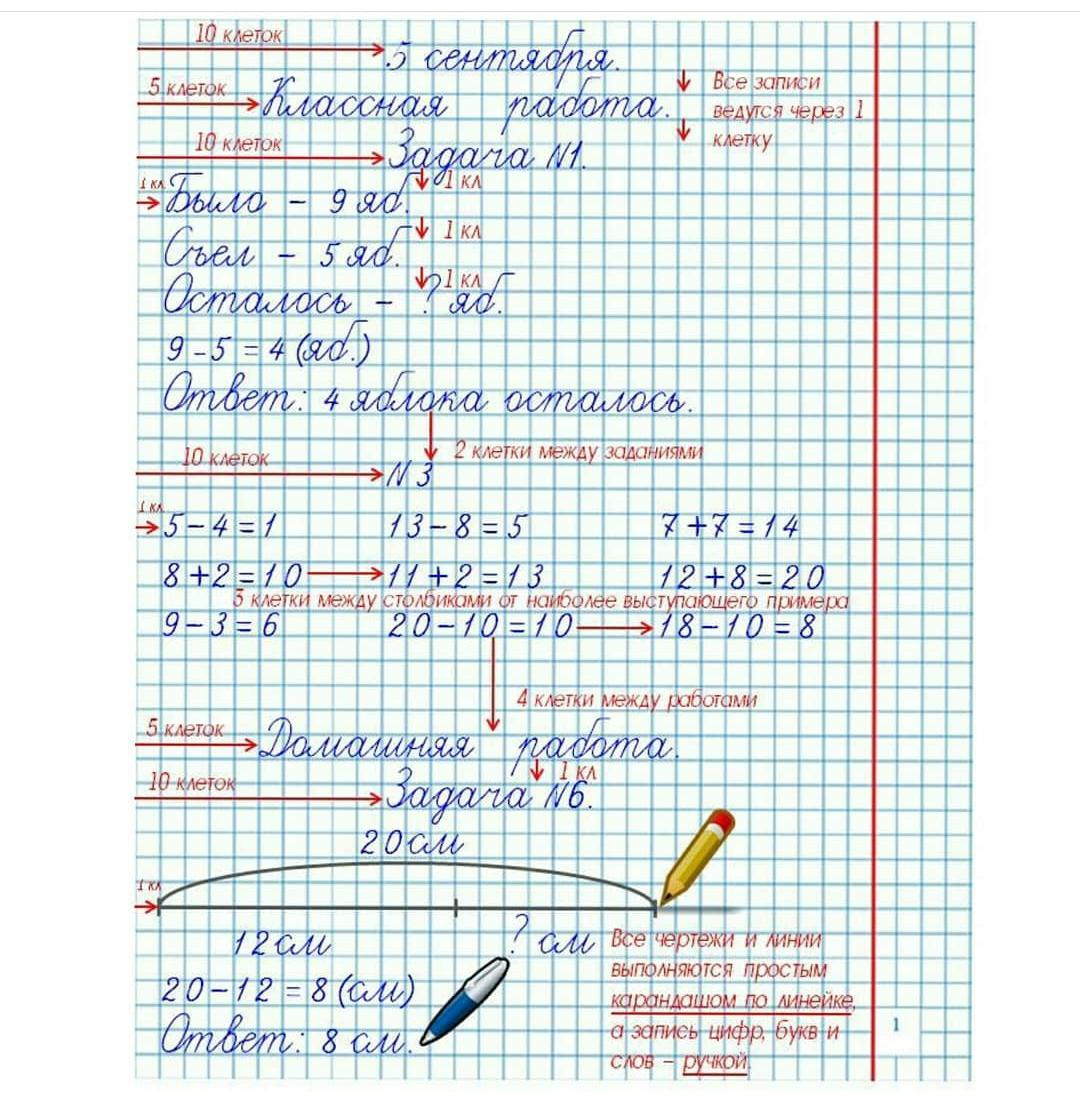 10 клеток
5 сентября.
5 клеток
Классная работа.
Все записи
ведутся через 1
клетку
10 клеток
Задача №1.
1 кл
1 кл
Было – 9 яб.
1 кл
Съел – 5 яб.
1 кл
Осталось – ? яб.
9 – 5 = 4 (яб.)
Ответ: 4 яблока осталось.
2 клетки между заданиями
10 клеток
№ 3
1 кл
5 – 4 = 1 13 – 8 = 5 7 + 7 = 14
8 + 2 = 10 11 + 2 = 13 12 + 8 = 20
3 клетки между столбиками от наиболее выступающего примера
9 – 3 = 6 20 – 10 = 10 18 – 10 = 8
4 клетки между работами
5 клеток
Домашняя работа.
1 кл
10 клеток
Задача №6.
20 см
1 кл
12 см ? см
20 – 12 = 8 (см)
Ответ: 8 см.
Все чертежи и линии
выполняются простым
карандашом по линейке,
а запись цифр, букв и
слов – ручкой.
1